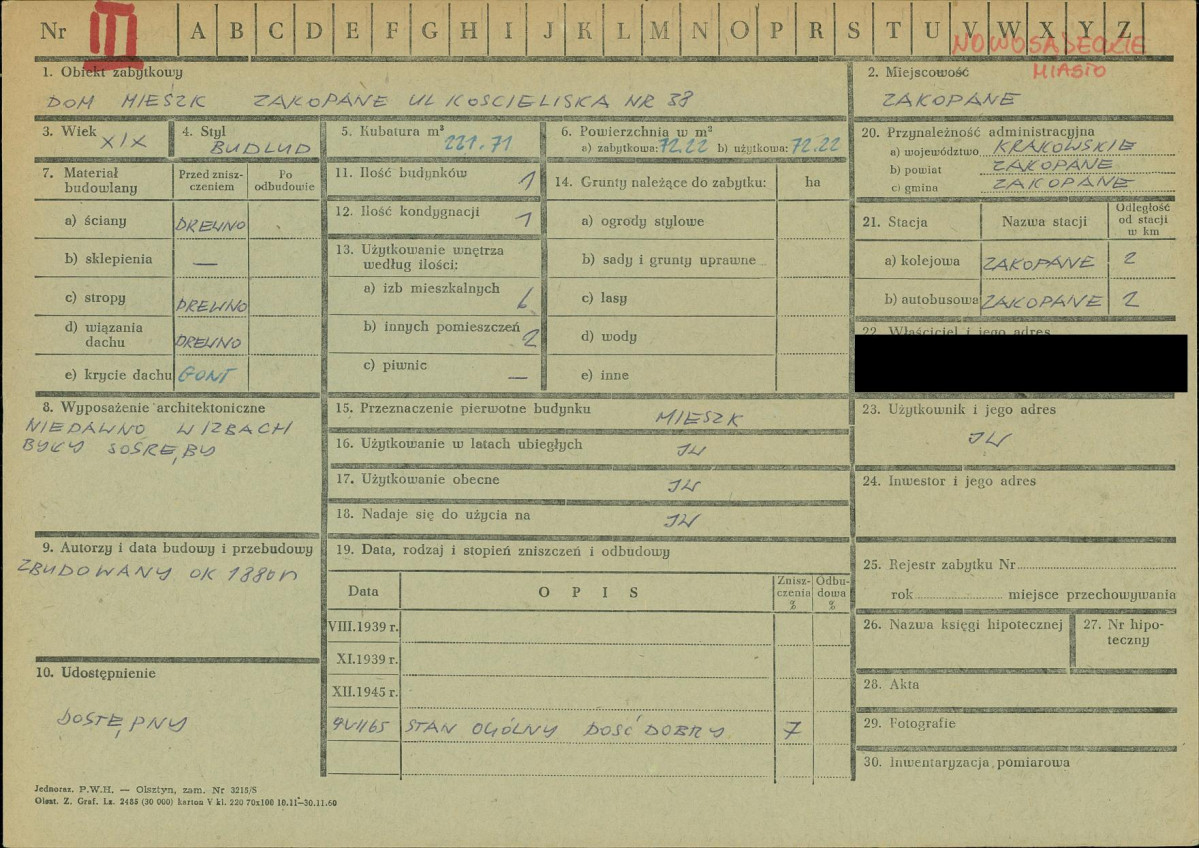 Nr III A B C D E F G H I J K L M N O P R S T U V W X Y Z
NOWOSĄDECKIE
MIASTO
1. Obiekt zabytkowy
DOM MIESZK ZAKOPANE UL KOŚCIELISKA NR 38
2. Miejscowość
ZAKOPANE
3. Wiek XIX
4. Styl
BUDLUD
5. Kubatura m³
221.71
6. Powierzchnia w m²
a) zabytkowa: 72.22 b) użytkowa: 72.22
20. Przynależność administracyjna
a) województwo KRAKOWSKIE
b) powiat ZAKOPANE
c) gmina ZAKOPANE
7. Materiał budowlany
Przed zniszczeniem
Po odbudowie
a) ściany DREWNO
b) sklepienia —
c) stropy DREWNO
d) wiązania dachu DREWNO
e) krycie dachu GONT
11. Ilość budynków 1
12. Ilość kondygnacji 1
13. Użytkowanie wnętrza
według ilości:
a) izb mieszkalnych 6
b) innych pomieszczeń 2
c) piwnic —
14. Grunty należące do zabytku: ha
a) ogrody stylowe
b) sady i grunty uprawne
c) lasy
d) wody
e) inne
21. Stacja Nazwa stacji Odległość od stacji w km
a) kolejowa ZAKOPANE 2
b) autobusowa ZAKOPANE 2
22. Właściciel i jego adres
8. Wyposażenie architektoniczne
NIEDAWNO W IZBACH
BYŁY SOSRĘBY
15. Przeznaczenie pierwotne budynku MIESZK
16. Użytkowanie w latach ubiegłych JW
17. Użytkowanie obecne JW
18. Nadaje się do użycia na JW
23. Użytkownik i jego adres
JW
24. Inwestor i jego adres
9. Autorzy i data budowy i przebudowy
ZBUDOWANY OK 1880 r
19. Data, rodzaj i stopień zniszczeń i odbudowy
Data OPIS Zniszczenia % Odbudowa %
VIII.1939 r.
XI.1939 r.
XII.1945 r.
9VII65 STAN OGÓLNY DOŚĆ DOBRY 7
25. Rejestr zabytku Nr
rok miejsce przechowywania
26. Nazwa księgi hipotecznej
27. Nr hipoteczny
28. Akta
29. Fotografie
30. Inwentaryzacja pomiarowa
10. Udostępnienie
DOSTĘPNY
Jednoraz. P.W.H. — Olsztyn, zam. Nr 3215/S
Olszt. Z. Graf. Lz. 2485 (30 000) karton V kl. 220 70x100 10.11–30.11.60